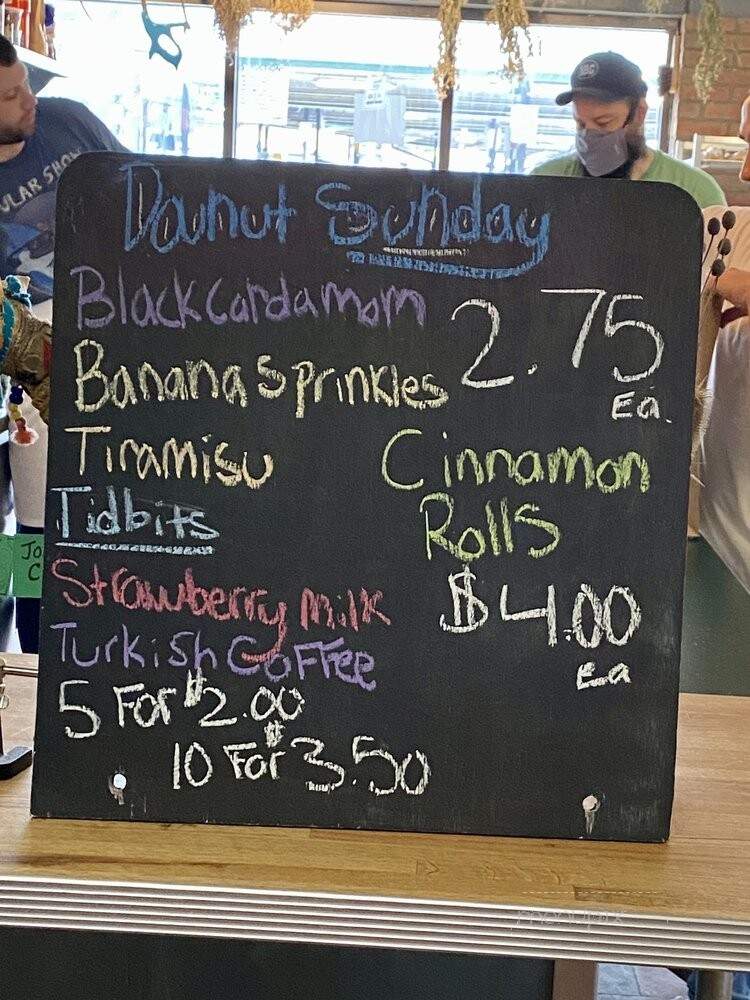 Donut Sunday
Black Cardamom
2.75
Ea.
Banana Sprinkles
Tiramisu
Cinnamon
Rolls
$4.00
ea
Tidbits
Strawberry Milk
Turkish Coffee
5 For $2.00
10 For $3.50
ULAR SHOW
JO
C
menupix